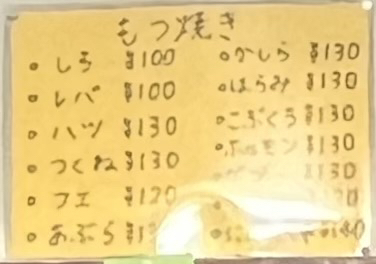 もつ焼き
○しろ ¥100
○レバ ¥100
○ハツ ¥130
○つくね ¥130
○フエ ¥120
○あぶら
○かしら ¥130
○はらみ ¥130
○こぶくろ ¥130
○ホルモン ¥130
¥130